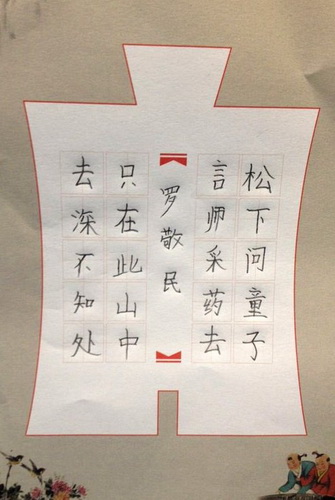 松下问童子
言师采药去
罗敬民
只在此山中
去深不知处